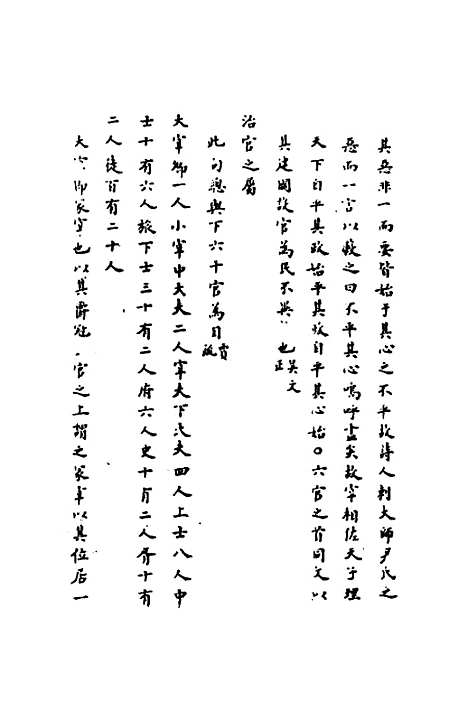 其惡非一而要皆始于其心之不平故詩人刺大師尹氏之
惡而一言以蔽之曰不平其心嗚呼盡矣故宰相佐天子理
天下自平其政始平其政自平其心始○六官之首同文以
其建國設官為民不異 也吳文正
治官之屬
此句總與下六十官為目賈疏
大宰卿一人小宰中大夫二人宰夫下大夫四人上士八人中
士十有六人旅下士三十有二人府六人史十有二人胥十有
二人徒百有二十人
大宰即冢宰也以其爵冠 官之上謂之冢宰以其位居一